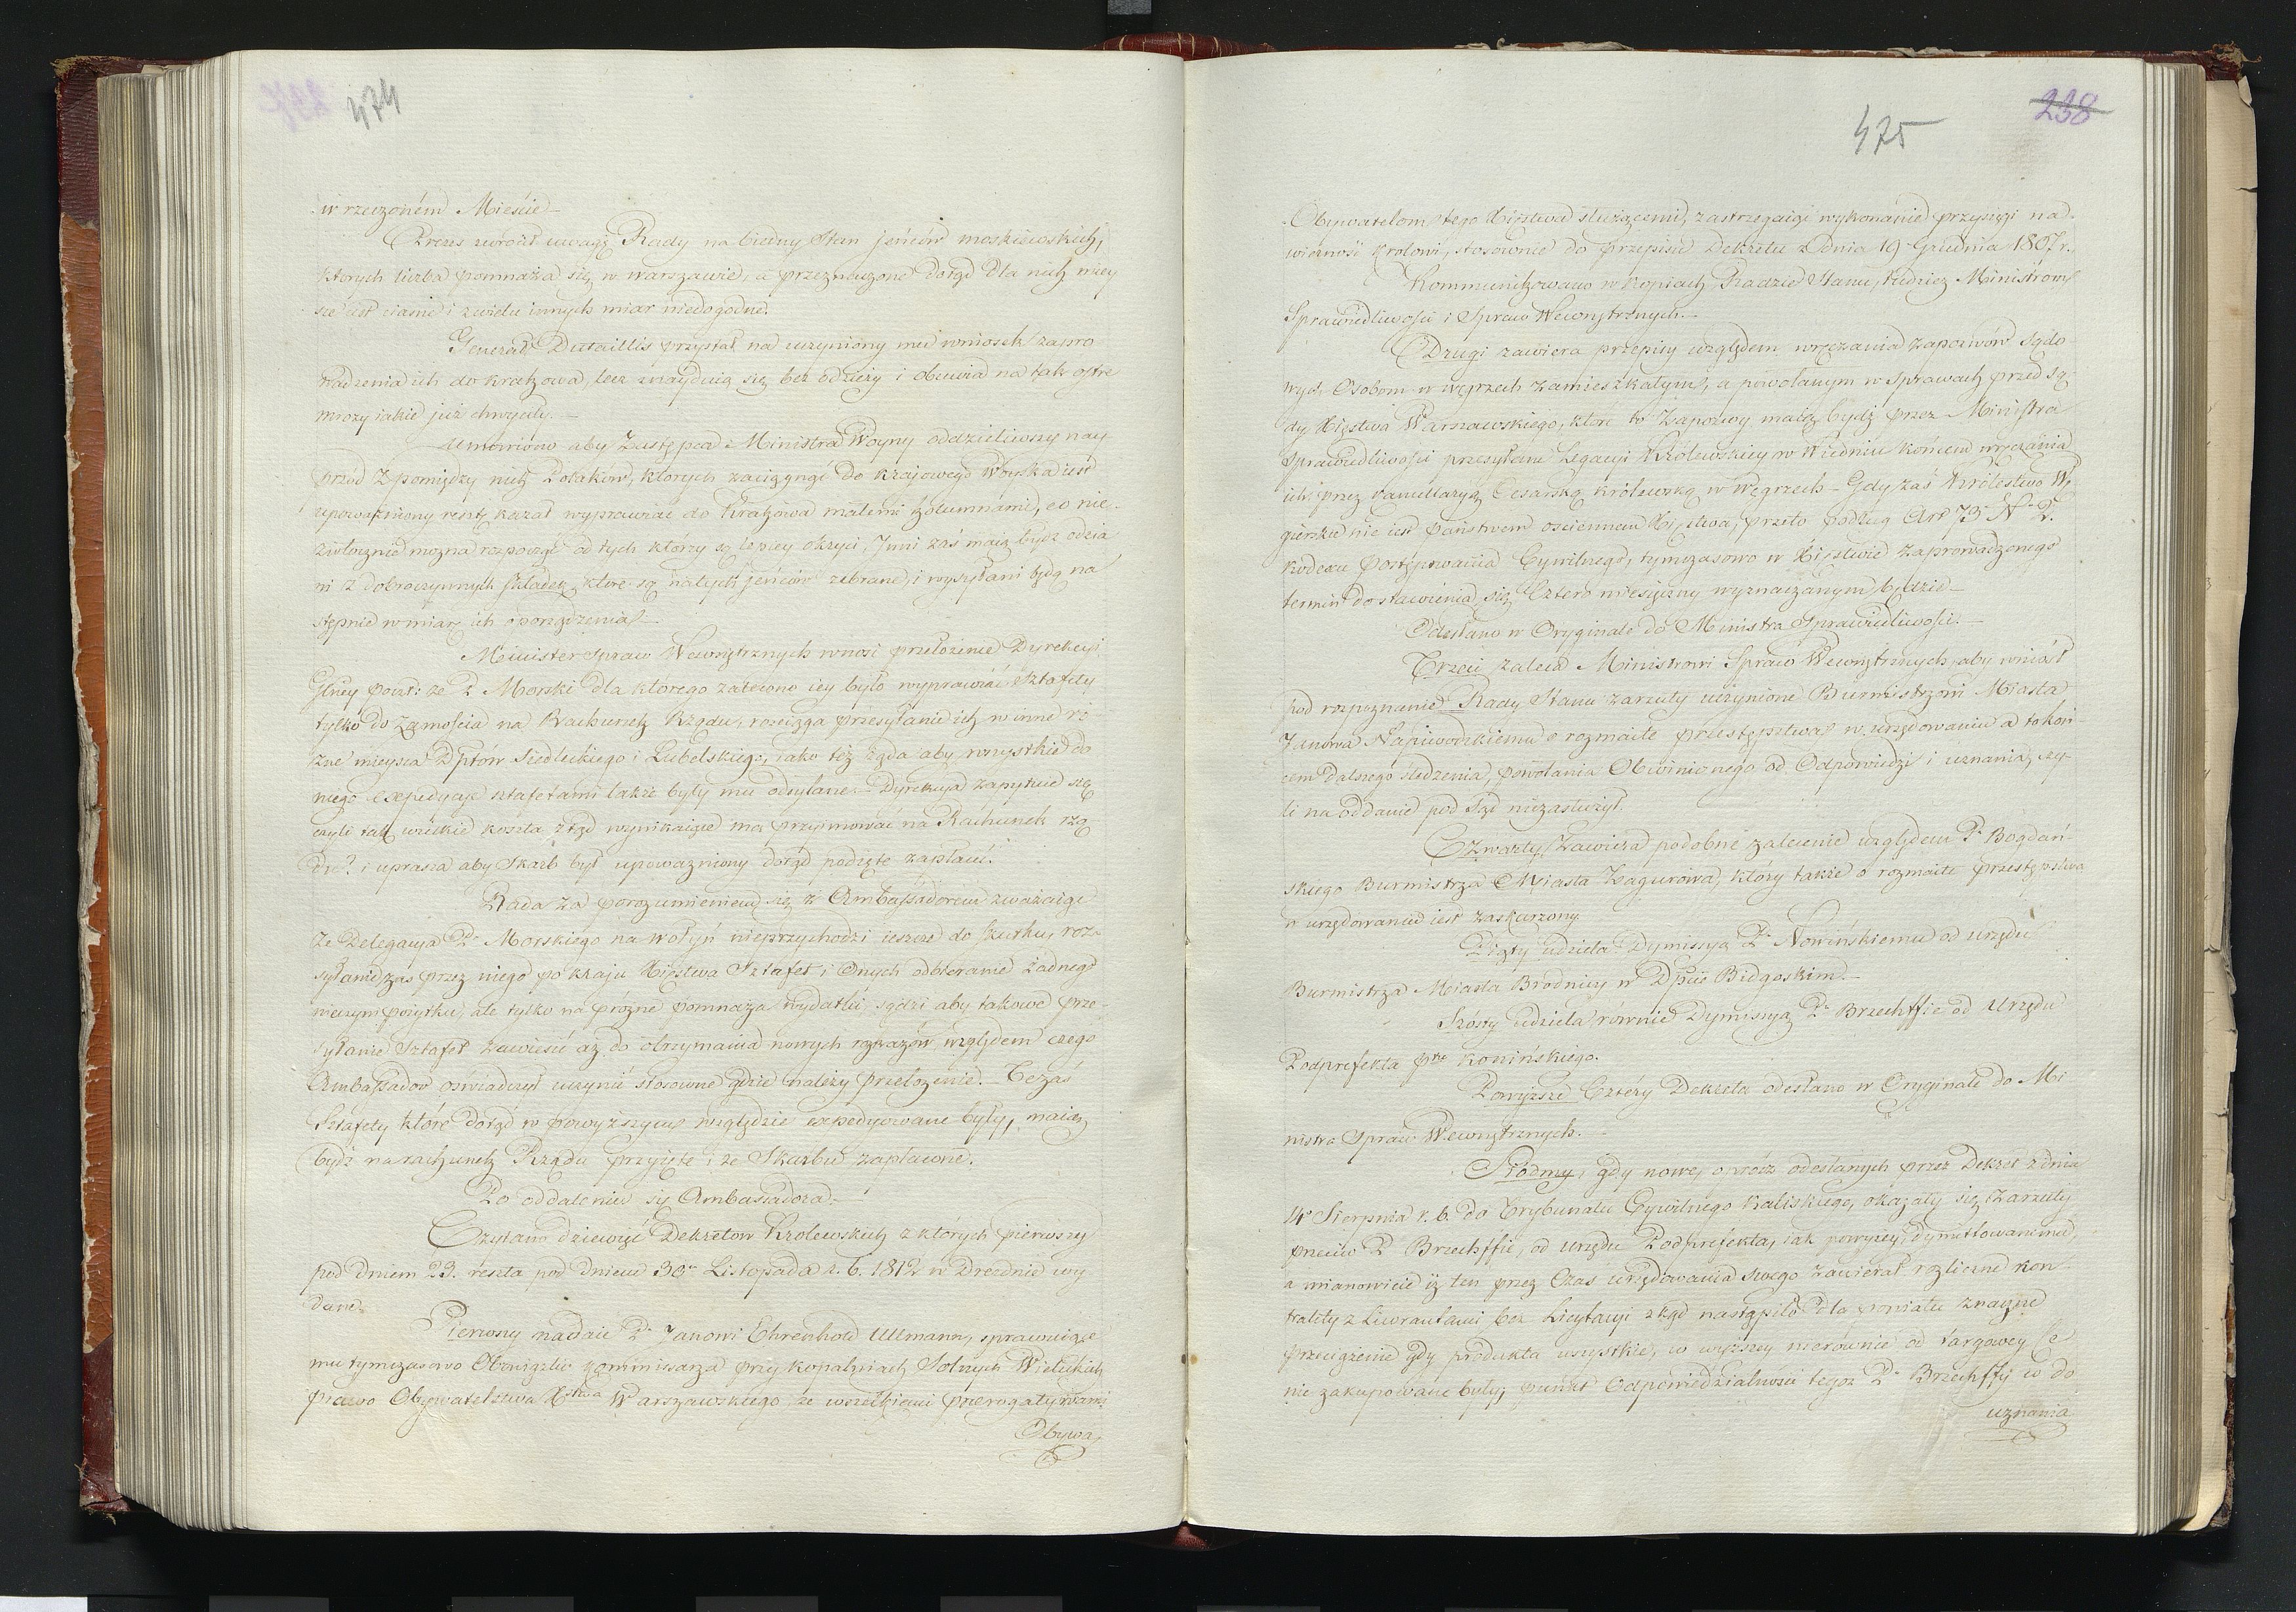 474
w rzeczoném Mieście –
Prezes zwrócił uwagę Rady na biedny Stan jeńców moskiewskich,
których liczba pomnaża się w Warszawie, a przeznaczone dotąd dla nich miey
sce iest ciasne i z wielu innych miar niedogodne.
Generał Dutaillis przystał na uczyniony mu wniosek zapro
wadzenia ich do Krakowa, lecz znayduią się bez odzieży i obuwia na tak ostre
mrozy iakie już chwyciły. –
Umówiono aby Zastępca Ministra Woyny oddzieliwszy nay
przód z pomiędzy nich Polaków, których zaciągnąć do kraiowego Woyska iest
upoważniony resztę kazał wyprawiać do Krakowa małemi kolumnami, co nie-
zwłocznie można rozpocząć od tych którzy są lepiey okryci, Inni zaś maią bydź odzia
ni z dobroczynnych składek, które są na tych jeńców zebrane, i wysyłani będą na
stępnie w miarę ich oporządzenia. –
Minister Spraw Wewnętrznych wnosi przełożenie Dyrekcyi
Głney Poczt: że P. Morski dla którego zalecono iey było wyprawiać Sztafety
tylko do Zamościa na Rachunek Rządu, rosciąga przesyłanie ich w inne ró
żne mieysca Dptów Siedleckiego i Lubelskiego, iako też żąda aby wszystkie do
niego expedycye sztafetami także były mu odsyłane – Dyrekcya zapytuie się
czyli tak wielkie koszta ztąd wynikaiące ma przyimować na Rachunek Rzą
du? i uprasza aby Skarb był upoważniony dotąd podięte zapłacić.
Rada za porozumieniem się z Ambassadorem zważaiąc
że Delegacya P. Morskiego na Wołyń nieprzychodzi ieszcze do skutku, roz
syłanie zaś przez niego po kraju Xięstwa Sztafet i onych odbieranie żadnego
nieczyni pożytku, ale tylko na próżne pomnaża wydatki, sądzi aby takowe prze
syłanie Sztafet zawiesić aż do otrzymania nowych rozkazów względem czego
Ambassador oświadczył uczynić stosowne gdzie należy przełożenie. Te zaś
Sztafety które dotąd w powyższym względzie expedyowane były, maią
bydź na rachunek Rządu przyięte i ze Skarbu zapłacone.
Po oddaleniu się Ambassadora –
Czytano dziewięć Dekretow Krolewskich z których pierwszy
pod dniem 23. reszta pod dniem 30. Listopada r. b. 1812 w Dreznie wy
dane.
Pierwszy nadaie P. Janowi Ehrenhold Ullmann, sprawuiące
mu tymczasowo Obowiązki Kommissarza przy kopalniach Solnych Wielickich
prawo Obywatelstwa Xstwa Warszawskiego, ze wszelkiemi prerogatywami
Obywa
238
475
Obywatelom tego Xięstwa służącemi, zastrzegaiąc wykonanie przysięgi na
wierność Krolowi, stosownie do przepisu Dekretu z Dnia 19 Grudnia 1807 r.
Kommunikowano w kopiach Radzie Stanu, tudzież Ministrowi
Sprawiedliwości i Spraw Wewnętrznych. –
Drugi zawiera przepisy względem wręczania zapozwów sądo-
wych Osobom w Węgrzech zamieszkałym, a powołanym w sprawach przed Są-
dy Xięstwa Warszawskiego, które to Zapozwy maią bydź przez Ministra
Sprawiedliwości przesyłane Legacyi Królewskiey w Wiedniu końcem wręczania
ich przez Kancellaryą Cesarską królewską w Węgrzech – Gdy zaś Królestwo Wę
gierskie nie iest państwem ościennem Xięstwa, przeto podług Art 73. N. 2.
kodexu postępowania Cywilnego, tymczasowo w Xięstwie zaprowadzonego
termin do stawienia się Cztero miesięczny wyznaczanym będzie –
Odesłano w Oryginale do Ministra Sprawiedliwości. –
Trzeci zaleca Ministrowi Spraw Wewnętrznych, aby wniósł
pod rozpoznanie Rady Stanu zarzuty uczynione Burmistrzowi Miasta
Janowa Napiwodzkiemu o rozmaite przestępstwa w urzędowaniu a to koń-
cem dalszego śledzenia, powołania Obwinionego od Odpowiedzi i uznania, czy-
li na oddanie pod Sąd niezasłużył.
Czwarty, zawiera podobne zalecenie względem P. Bogdań-
skiego Burmistrza Miasta Zagurowa, który także o rozmaite przestępstwa
w urzędowaniu iest zaskarżony.
Piąty udziela Dymissyą P. Nowińskiemu od urzędu
Burmistrza Miasta Brodnicy w Dpcie Bidgoskim. –
Szósty udziela równie Dymissyą P. Brzechffie od Urzędu
Podprefekta ptu Konińskiego.
Powyższe Cztéry Dekreta odesłano w Oryginale do Mi
nistra Spraw Wewnętrznych. –
Siódmy, gdy nowe, oprócz odesłanych przez Dekret z dnia
14 Sierpnia r. b. do Trybunału Cywilnego Kaliskiego, okazały się Zarzuty
przeciw P. Brzechffie, od urzędu Podprefekta, iak powyżey, dymittowanemu,
a mianowicie iż ten przez Czas urzędowania swego zawierał rozliczne kon-
trakty z Liwrantami bez Licytacyi zkąd nastąpiło dla powiatu znaczne
przeciążenie gdy produkta wszystkie, w wyższey nierównie od targowey Ce
nie zakupowane były, punkt Odpowiedzialności tegoż P. Brzechffy co do
uznania